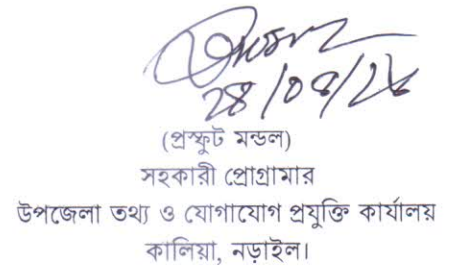 (প্রস্ফুট মন্ডল)
সহকারী প্রোগ্রামার
উপজেলা তথ্য ও যোগাযোগ প্রযুক্তি কার্যালয়
কালিয়া, নড়াইল।